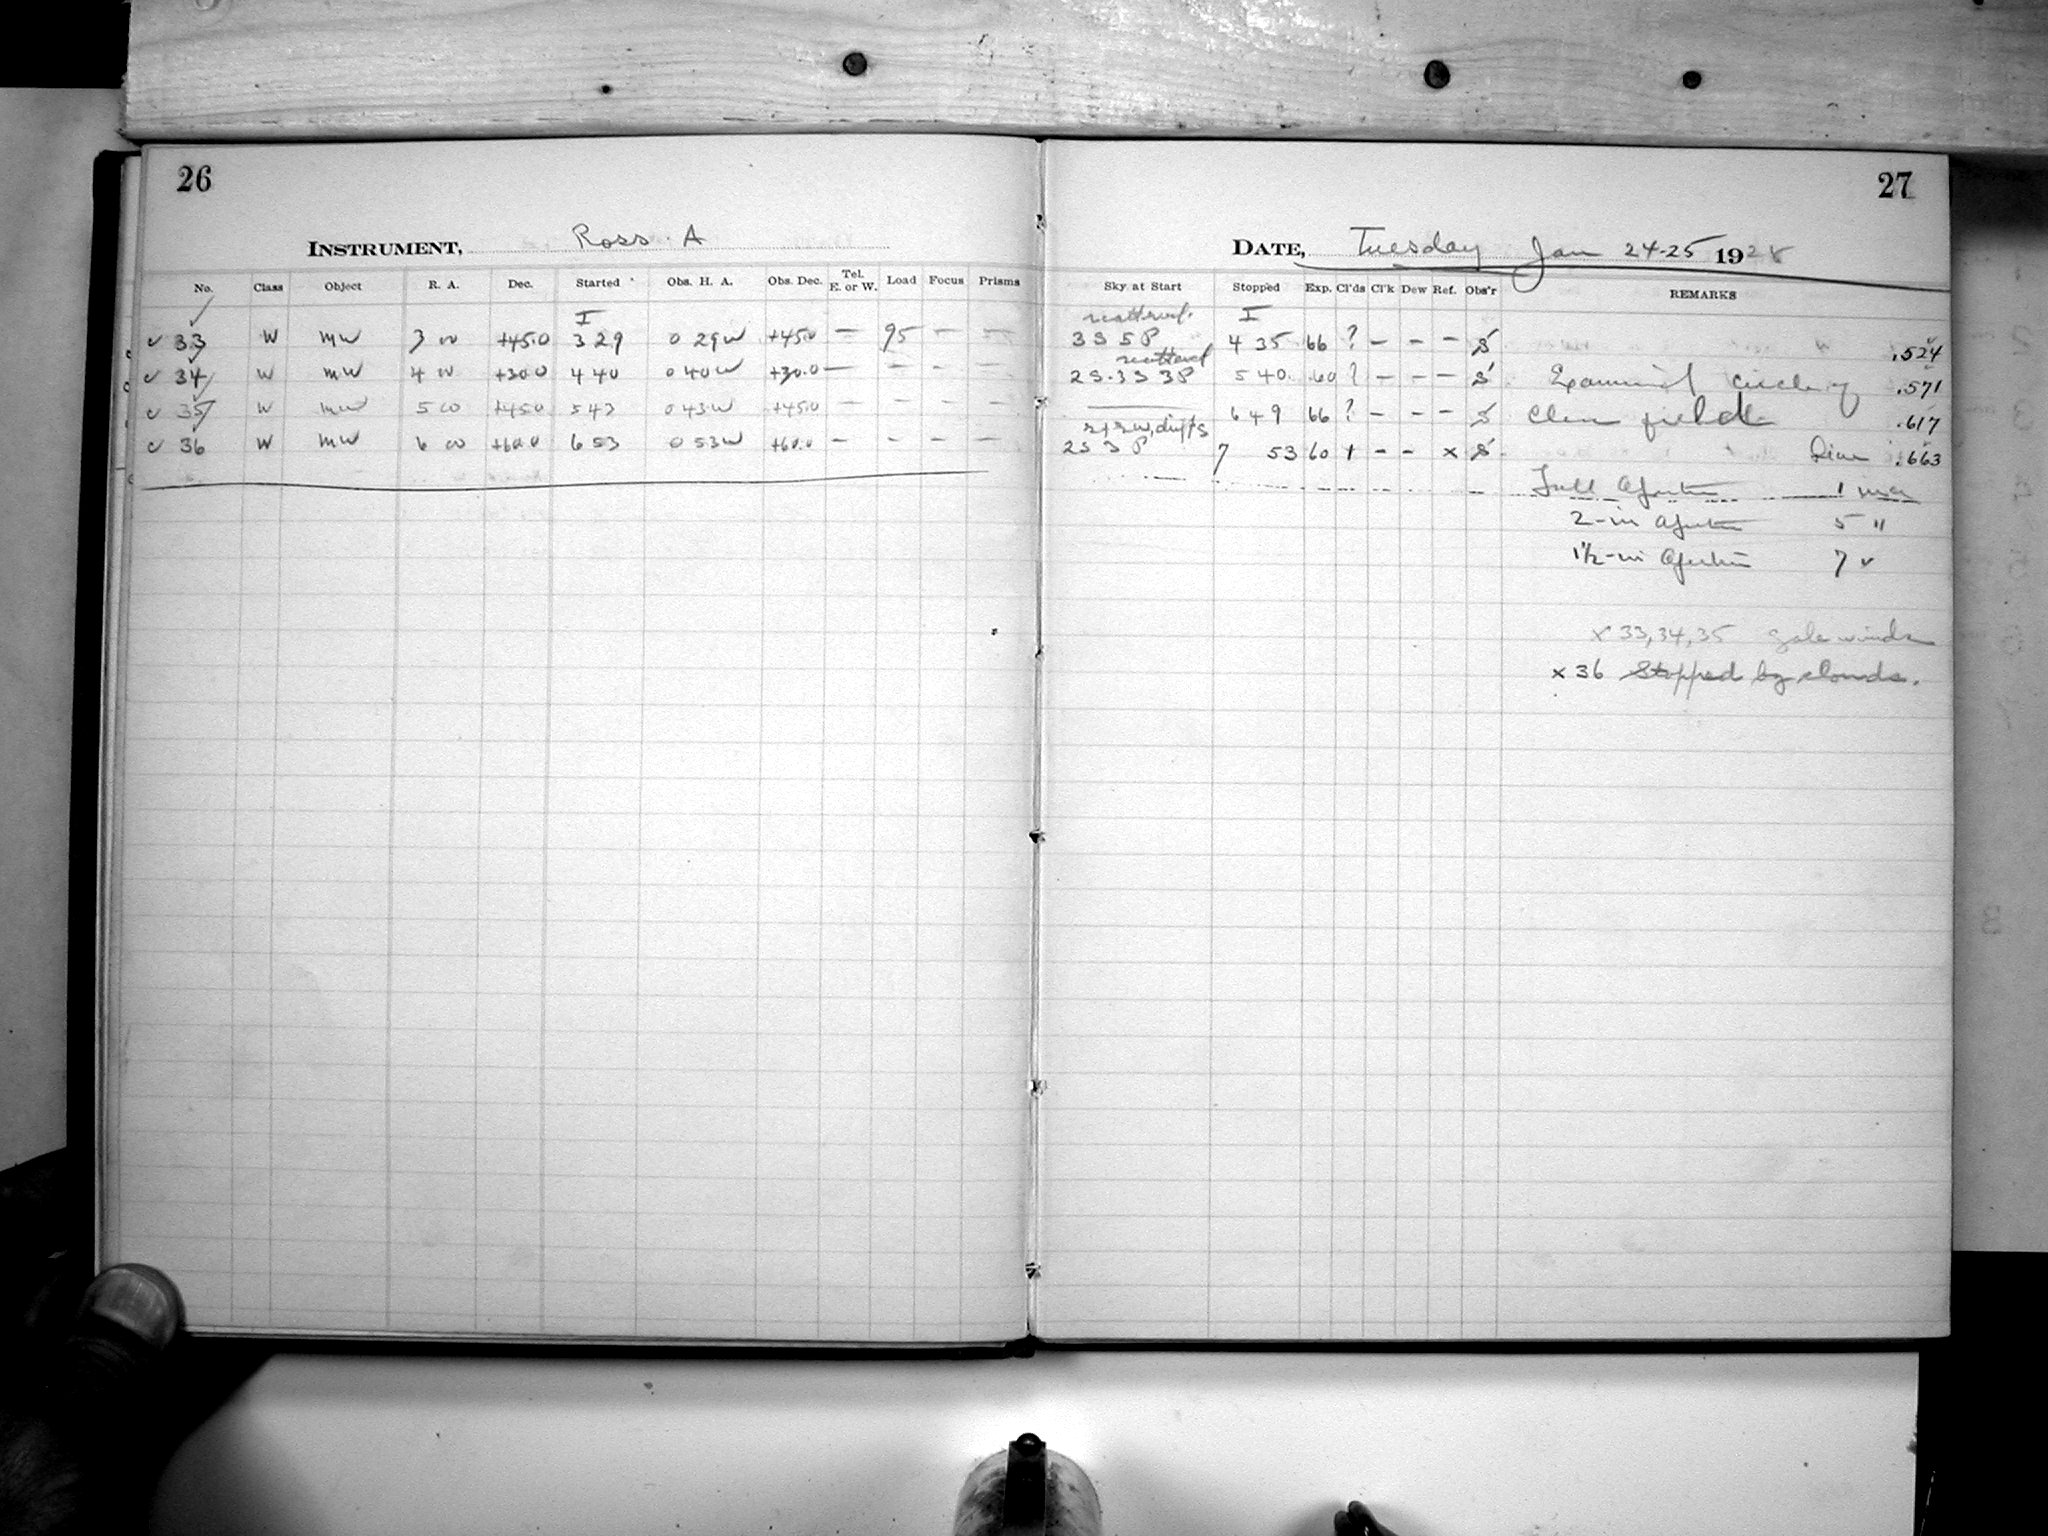 26
INSTRUMENT, Ross A
No. Class Object R. A. Dec. Started Obs. H. A. Obs. Dec. Tel. E. or W. Load Focus Prisms
I
✓ 33 W MW 3 00 +45.0 3 29 0 29W +45.0 — 95 — —
✓ 34 W MW 4 00 +30.0 4 40 0 40W +30.0 — — — —
✓ 35 W MW 5 00 +45.0 5 43 0 43W +45.0 — — — —
✓ 36 W MW 6 00 +60.0 6 53 0 53W +60.0 — — — —
27
DATE, Tuesday Jan 24-25 1928
Sky at Start Stopped Exp. Cl'ds Cl'k Dew Ref. Obs'r REMARKS
scattered I
3S 5P 4 35 66 ? — — — S .524
scattered
2S.3S 3P 5 40 60 ? — — — S Examined circle of .571
6 49 66 ? — — — S Clear field .617
drifts
2S 3P 7 53 60 — — x S Diam .663
Full Aperture 1
2-in Aperture 5 "
1½-in Aperture 7 "
x 33, 34, 35 gale winds
x 36 Stopped by clouds.